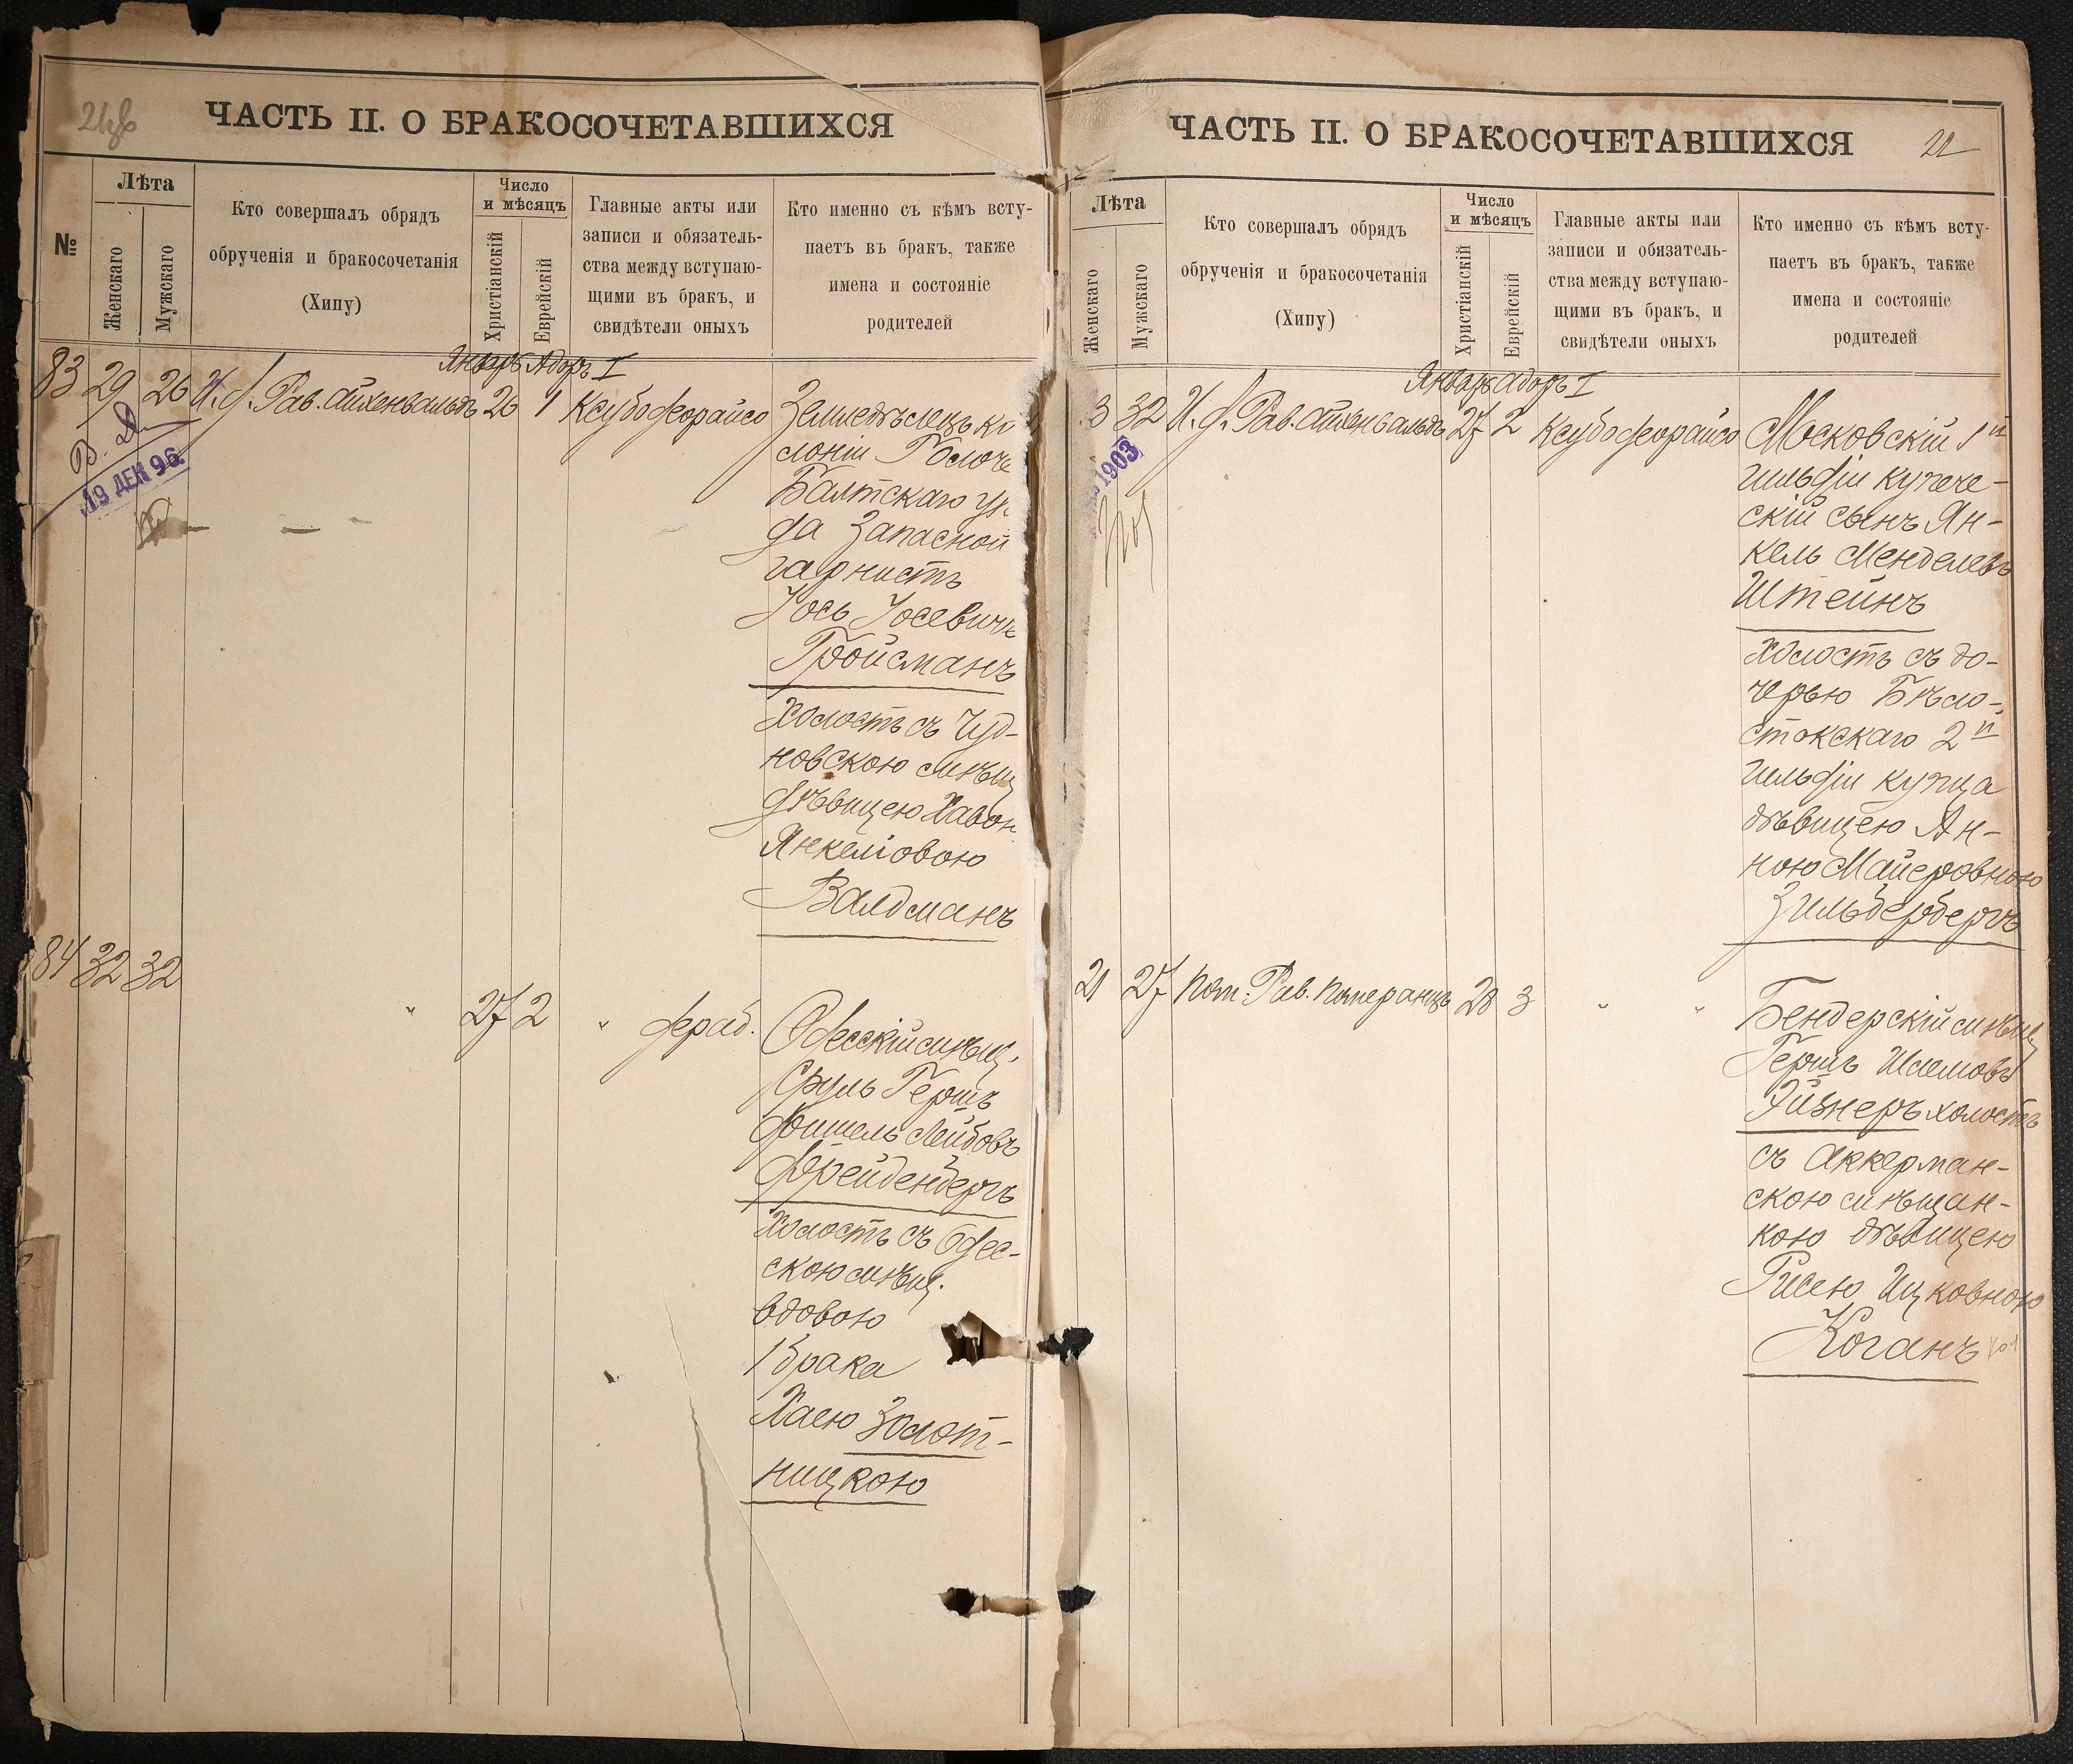 ЧАСТЬ II. О БРАКОСОЧЕТАВШИХСЯ
№
Лѣта
Женскаго
Мужскаго
Кто совершалъ обрядъ
обрученія и бракосочетанія
(Хипу)
Число
и мѣсяцъ
Христіанскій
Еврейскій
Главные акты или
записи и обязатель-
ства между вступаю-
щими въ бракъ, и
свидѣтели оныхъ
Кто именно съ кѣмъ всту-
паетъ въ бракъ, также
имена и состояніе
родителей
Январь Адоръ I
83 29 26 И. д. Рав. Айхенвальдъ 26 1 Ксубо деорайсо
19 ДЕК 96
Земледѣлецъ ко
лоніи
Балтскаго уѣ
да Запасной
гарнистъ
Іось Іосевичъ
Гройсманъ
Холостъ съ Чуд-
новскою мѣщ
дѣвицею Хавою
Янкеліовою
Валдманъ
84 32 32 " 27 2 " дераб.
Одесскій мѣщ.
Сруль Гершъ
Фишель Лейбовъ
Фрейденбергъ
Холостъ съ Одес-
скою мѣщ.
вдовою
1 брака
Хаею Золот-
ницкою
ЧАСТЬ II. О БРАКОСОЧЕТАВШИХСЯ
Лѣта
Женскаго
Мужскаго
Кто совершалъ обрядъ
обрученія и бракосочетанія
(Хипу)
Число
и мѣсяцъ
Христіанскій
Еврейскій
Главные акты или
записи и обязатель-
ства между вступаю-
щими въ бракъ, и
свидѣтели оныхъ
Кто именно съ кѣмъ всту-
паетъ въ бракъ, также
имена и состояніе
родителей
Январь Адоръ I
3 32 И. д. Рав. Айхенвальдъ 27 2 Ксубо деорайсо
1903
Московскій 1й
гильдіи купече-
скій сынъ Ян-
кель Менделевъ
Штейнъ
Холостъ съ до-
черью Бѣло-
стокскаго 2й
гильдіи купца
дѣвицею Ан-
ною Майеровною
Зильбербергъ
21 27 Пом. Рав. Померанцъ 28 3 " "
Бендерскій мѣщ
Гершъ Шлемовъ
Эйзнеръ холостъ
съ Аккерман-
скою мѣщан-
кою дѣвицею
Рисею Ицковною
Коганъ